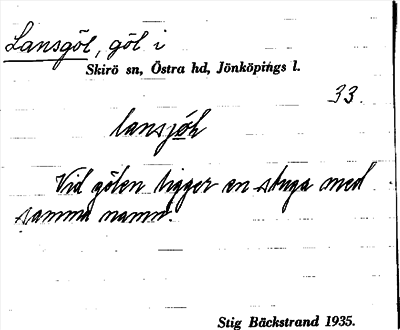 Lansgöl, göl i
Skirö sn, Östra hd, Jönköpings l.
33.
lansjöl
Vid gölen ligger en stuga med
samma namn.
Stig Bäckstrand 1935.